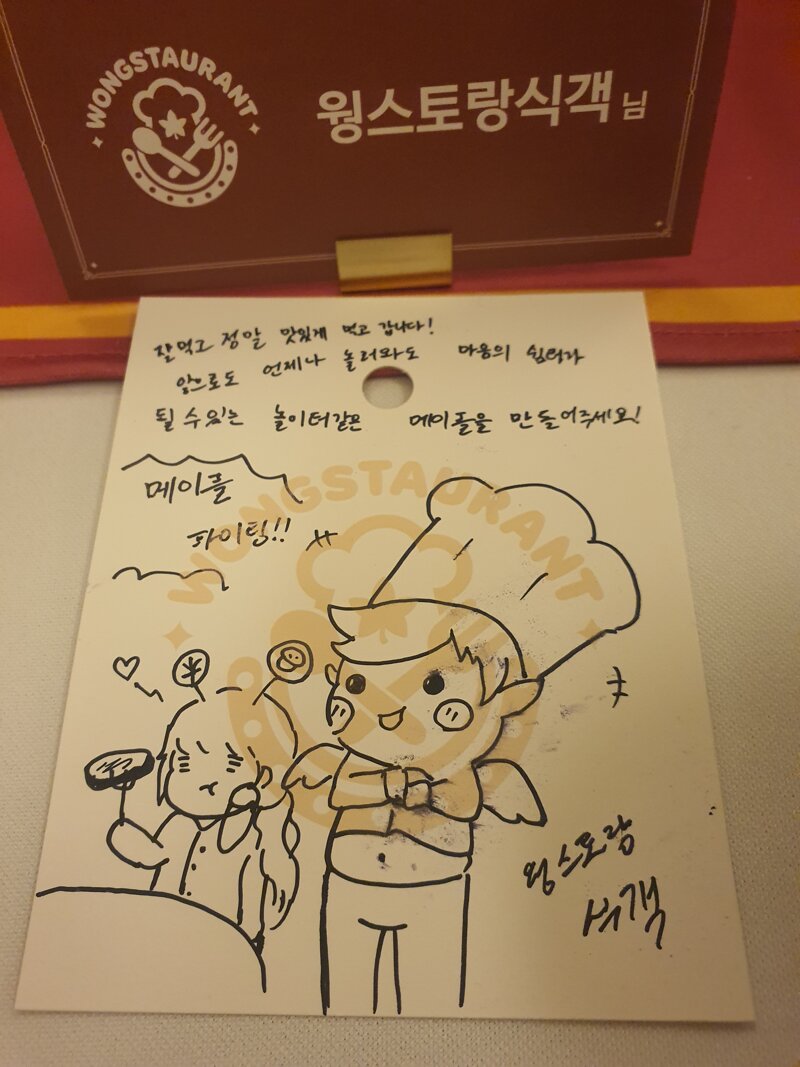 WONGSTAURANT
웡스토랑식객님
잘먹고 정말 맛있게 먹고 갑니다!
앞으로도 언제나 놀러와도 마음의 쉼터가
될 수 있는 놀이터같은 메이플을 만들어주세요!
메이플
파이팅!!
WONGSTAURANT
웡스토랑
식객